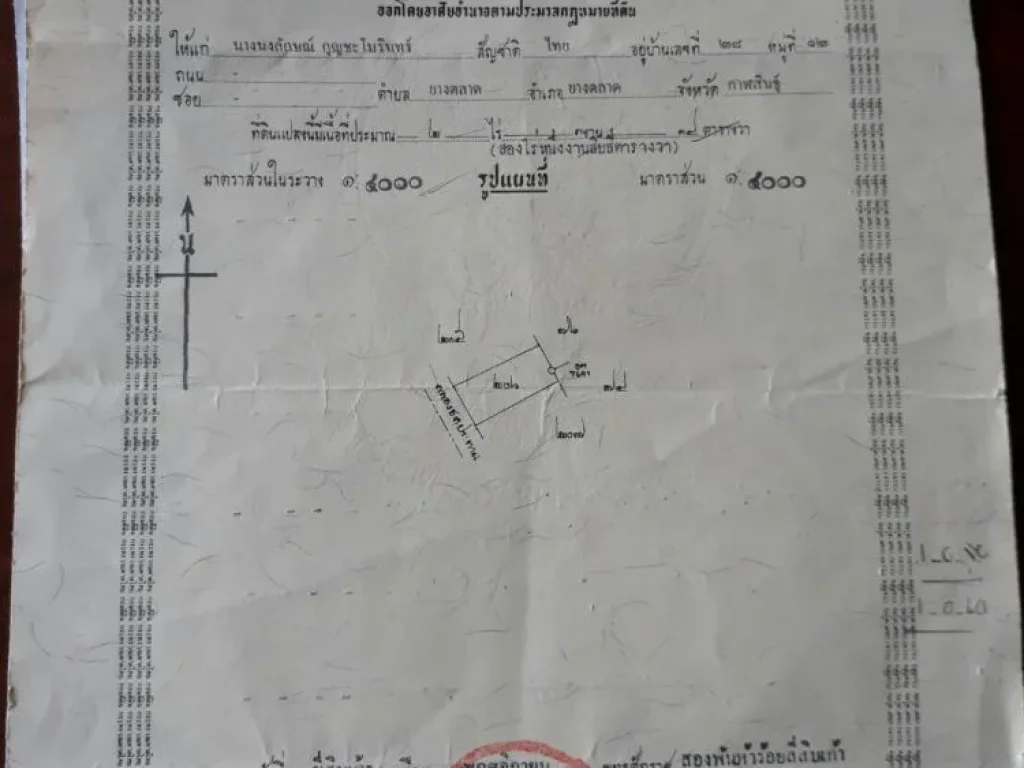 ออกโดยอาศัยอำนาจตามประมวลกฎหมายที่ดิน
ให้แก่ นางนงลักษณ์ กุญชะโมรินทร์ สัญชาติ ไทย อยู่บ้านเลขที่ ๒๘ หมู่ที่ ๑๒
ถนน -
ซอย - ตำบล ยางตลาด อำเภอ ยางตลาด จังหวัด กาฬสินธุ์
ที่ดินแปลงนี้มีเนื้อที่ประมาณ ๒ ไร่ ๑ งาน ๑๔ ตารางวา
(สองไร่หนึ่งงานสิบสี่ตารางวา)
มาตราส่วนในระวาง ๑:๔๐๐๐ รูปแผนที่ มาตราส่วน ๑:๔๐๐๐
น
คลองชลประทาน
พฤศจิกายน พุทธศักราช สองพันห้าร้อยสี่สิบเก้า